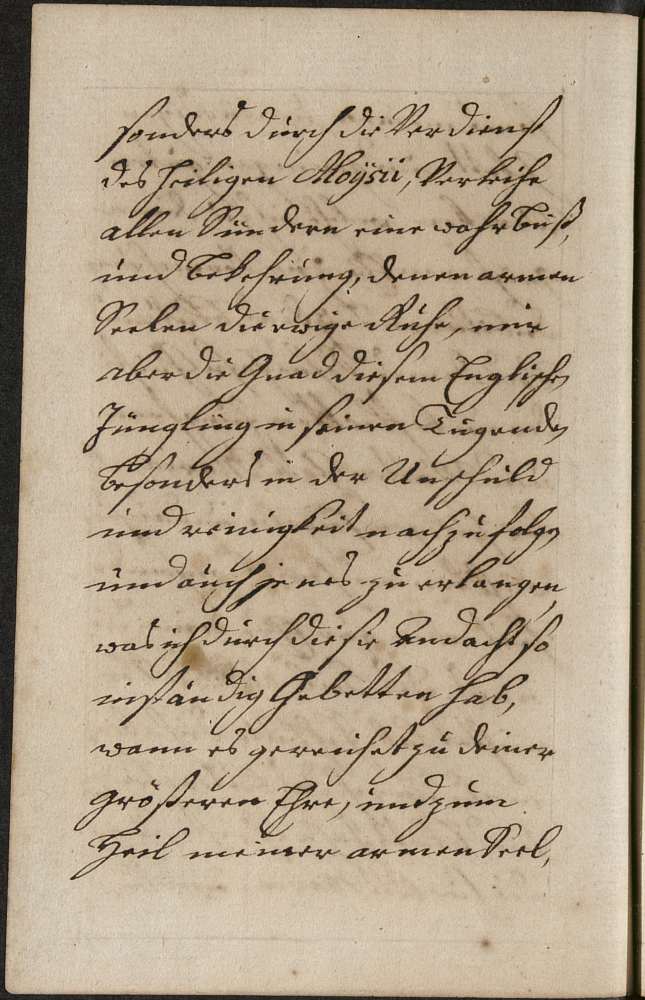 sonders durch die Verdienst
des heiligen Aloÿsii, Verleihe
allen Sündern eine wahr buß,
und bekehrung, denen armen
Seelen die ewige Ruhe, mir
aber die Gnad diesem Englischen
Jüngling in seinen Tugenden
besonders in der Unschuld
und reinigkeit nachzufolgen
und auch jenes zu erlangen,
was ich durch diese Andacht so
inständig Gebetten hab,
wann es gereichet zu deiner
größeren Ehre, und zum
Heil meiner armen Seel,